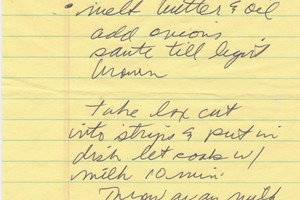 • melt butter & oil
add onions
saute till light
brown
take lox cut
into strips & put in
dish let soak w/
milk 10 min.
Throw away milk